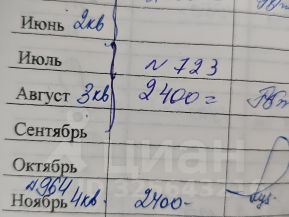 Июнь 2кв
Июль N 723
Август 3кв 2400=
Сентябрь
Октябрь
N964
Ноябрь 4кв. 2400-